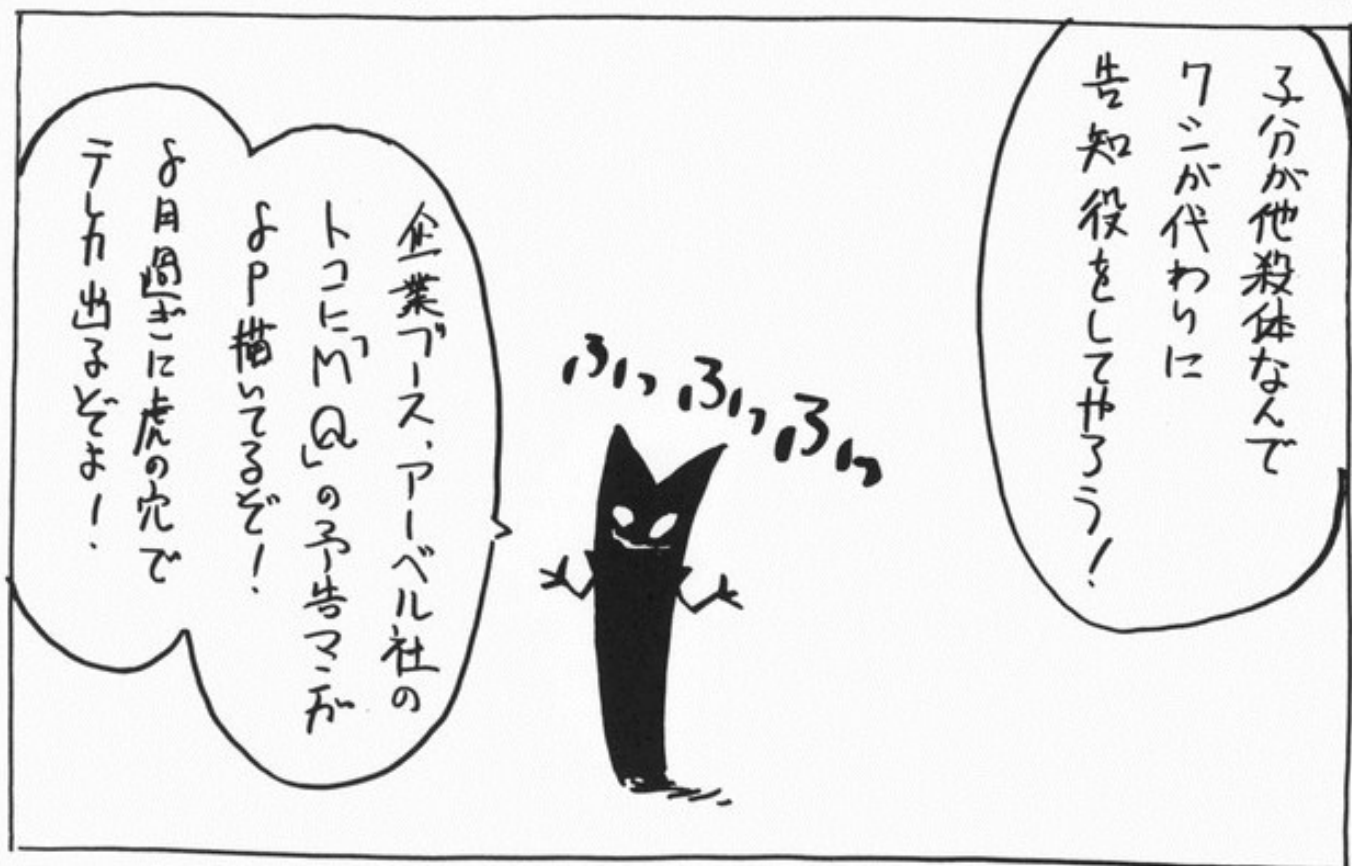 子分が他殺体なんで
ワシが代わりに
告知役をしてやろう!
ふっふっふっ
企業ブース、アーベル社の
トコに「MQ」の予告マンガ
8P描いてるぞ!
8月過ぎに虎の穴で
テレカ出るぞよ!